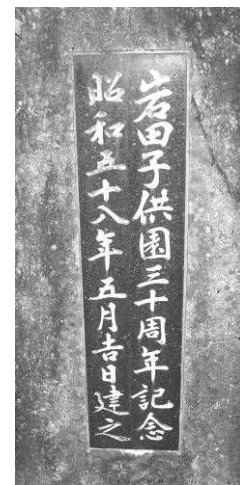 岩田子供園三十周年記念
昭和五十八年五月吉日建之